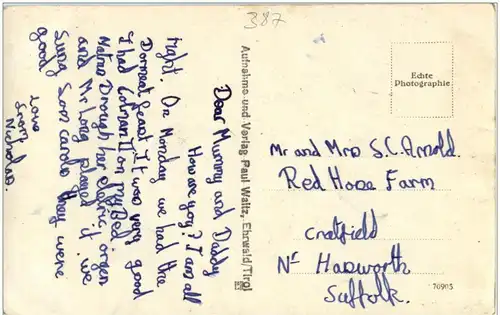 387
Dear Mummy and Daddy
How are you? I am all
right. On Monday we had the
Dormad feast It was very good
I had Colman II on my Bed.
Matron Brough her electric orgen
and Mr Long played it we
Sung Som carols they were
good
love
from
Nicholas.
Aufnahme und Verlag Paul Waitz, Ehrwald/Tirol
Echte
Photographie
Mr and Mrs S.C. Arnold.
Red House Farm
Cratfield
Nr Haloworth
Suffolk.
76905